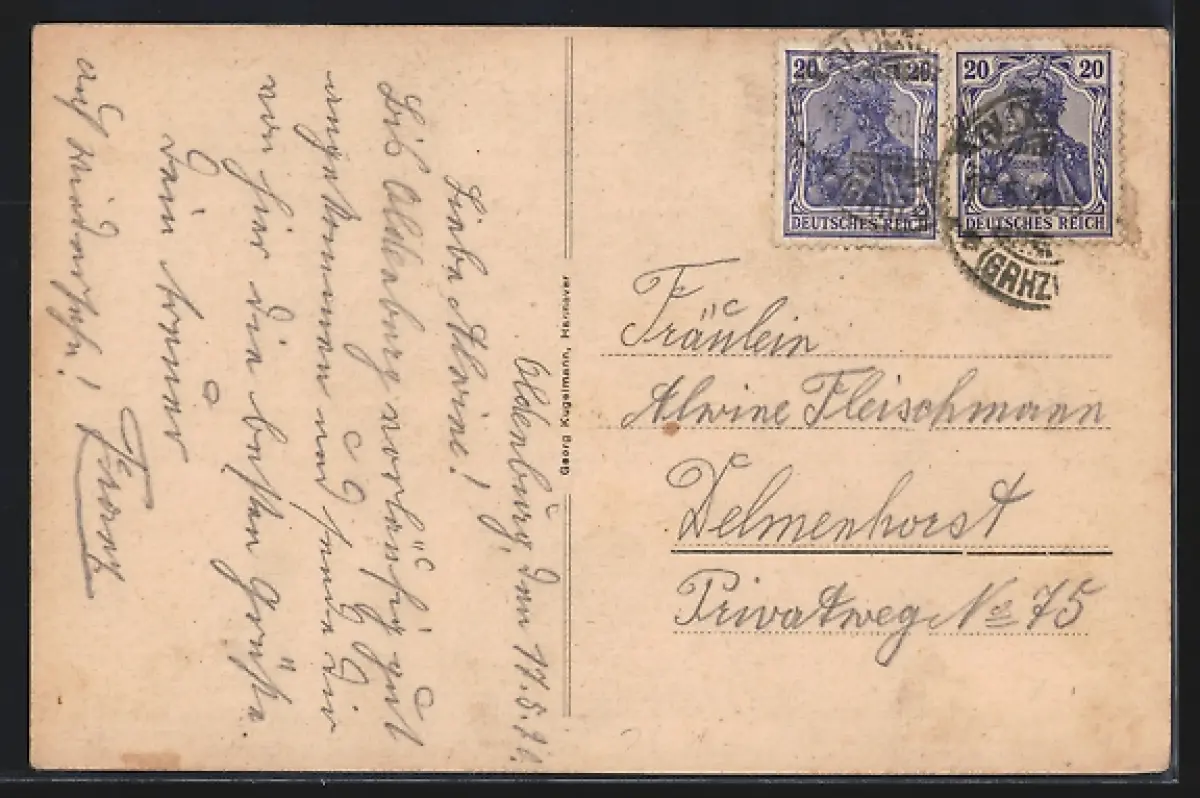 Oldenburg, den 17.5.21.
Liebe Alwine!
Bis Oldenburg vorläufig gut
angekommen und sende dir
von hier die besten Grüße.
Dein treuer
Franz
auf Wiedersehn!
Georg Kugelmann, Hannover
20 20
DEUTSCHES REICH
20 20
DEUTSCHES REICH
Fräulein
Alwine Fleischmann
Delmenhorst
Privatweg No 75